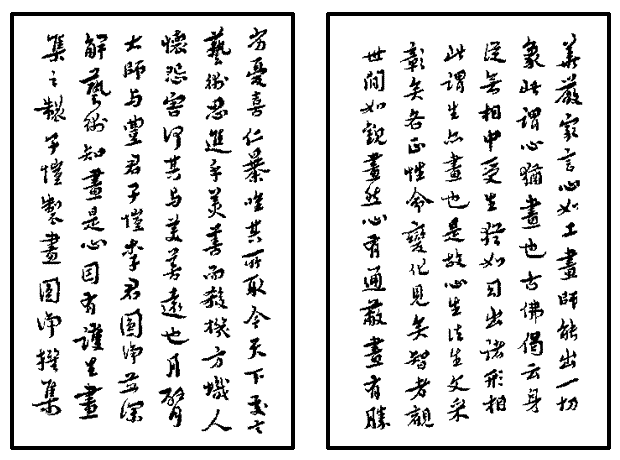 華嚴家言心如工畫師能出一切
象此謂心猶畫也古佛偈云身
從無相中受生猶如幻出諸形相
此謂生亦畫也是故心生法生文采
彰矣各正性命變化見矣智者觀
世間如觀畫然心有通蔽畫有勝
劣憂喜仁暴唯其所取今天下交言
藝術思進乎美善而殺機方熾人
懷怨害何其与美善遠也月臂
大師与豐君子愷李君圓淨並深
解藝術知畫是心因有護生畫
集之製子愷製畫圓淨撰集